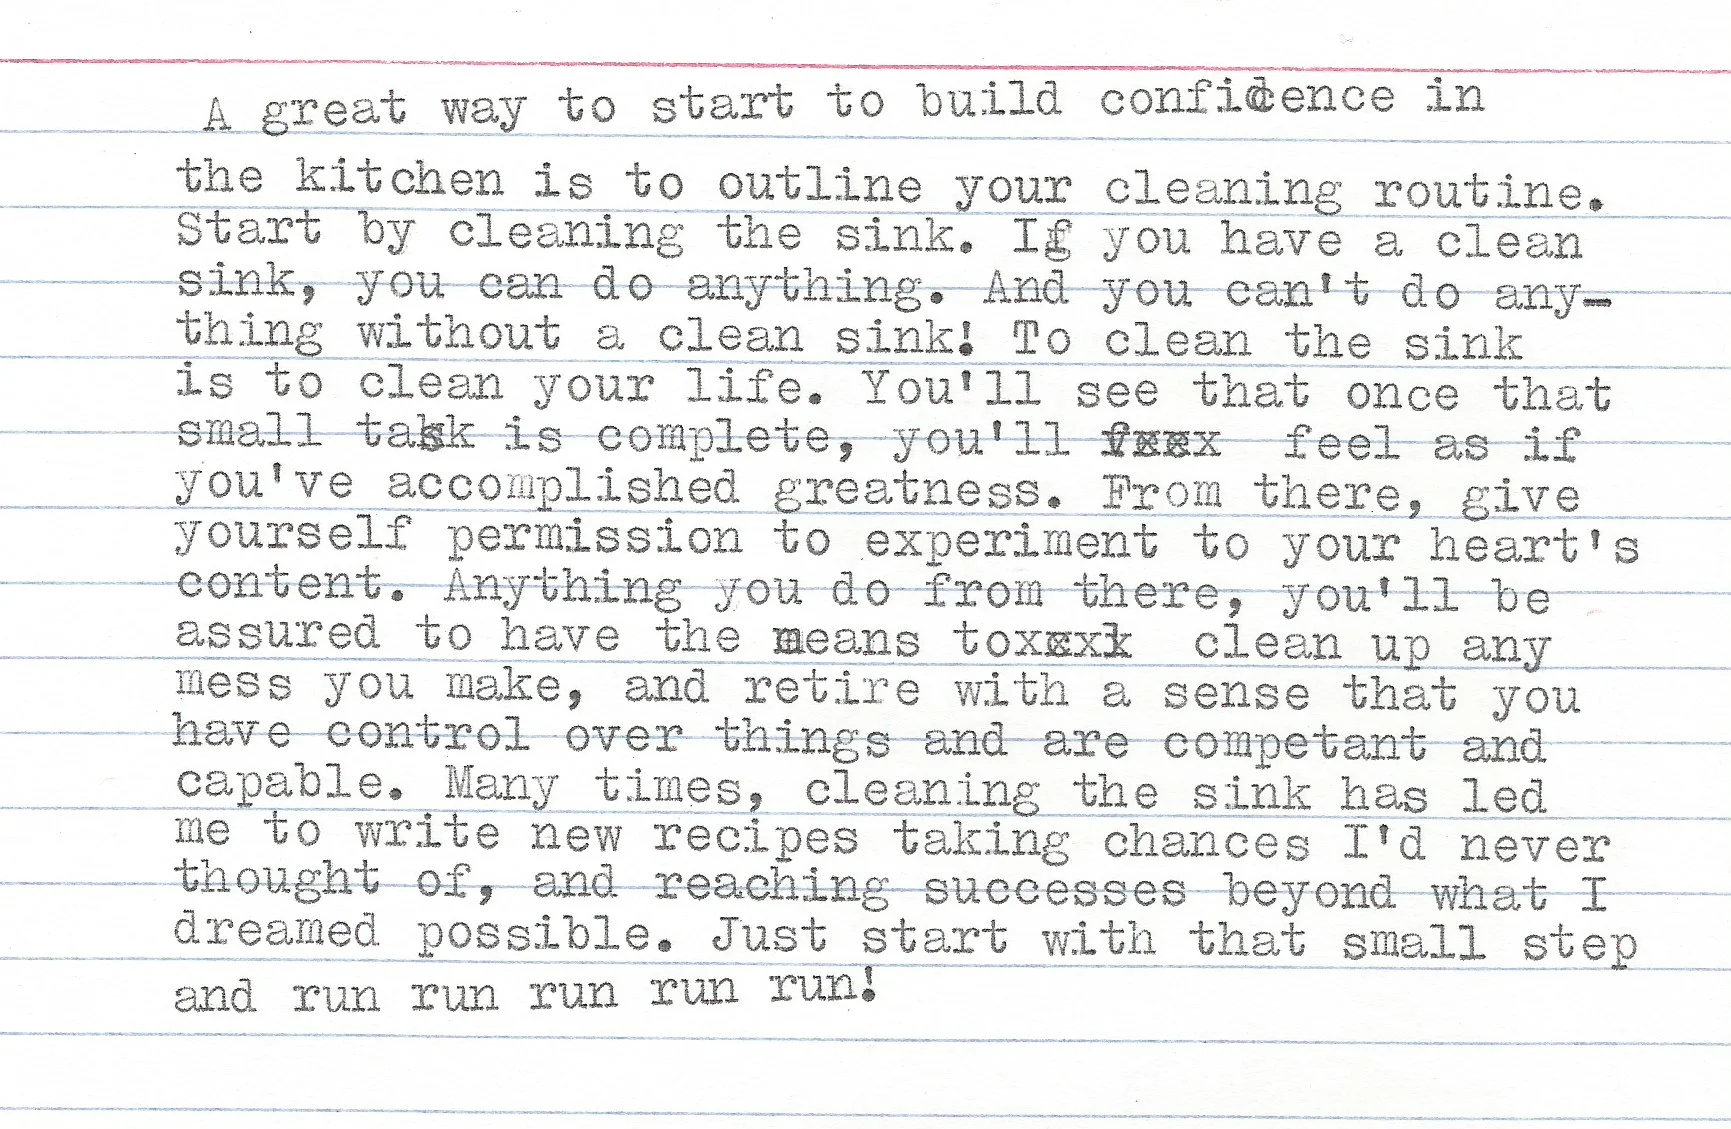 A great way to start to build confidence in
the kitchen is to outline your cleaning routine.
Start by cleaning the sink. If you have a clean
sink, you can do anything. And you can't do any-
thing without a clean sink! To clean the sink
is to clean your life. You'll see that once that
small task is complete, you'll feel as if
you've accomplished greatness. From there, give
yourself permission to experiment to your heart's
content. Anything you do from there, you'll be
assured to have the means to clean up any
mess you make, and retire with a sense that you
have control over things and are competant and
capable. Many times, cleaning the sink has led
me to write new recipes taking chances I'd never
thought of, and reaching successes beyond what I
dreamed possible. Just start with that small step
and run run run run run!